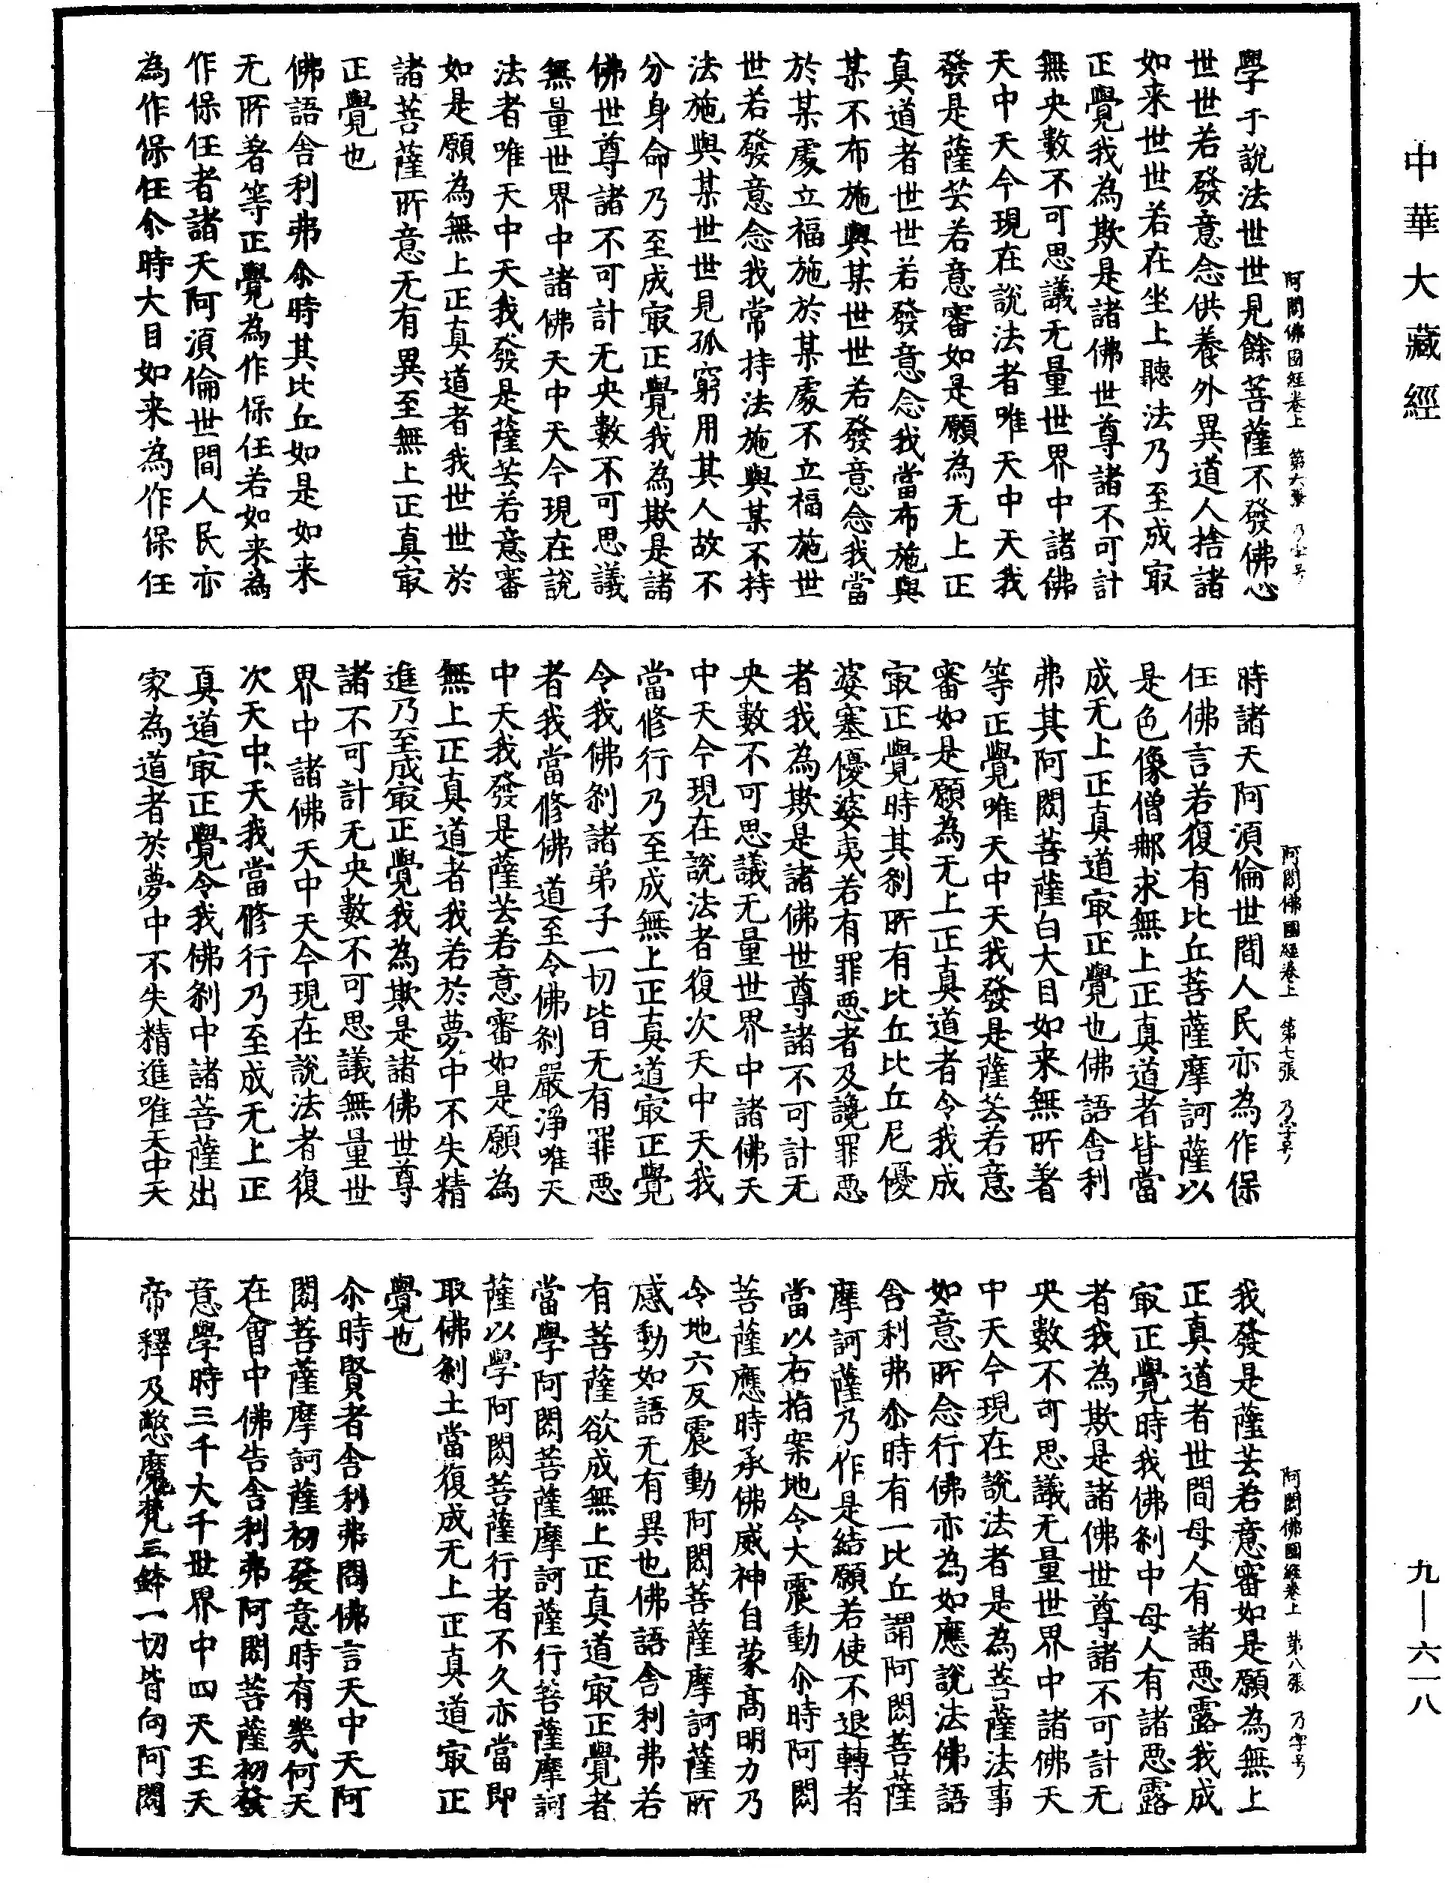 中華大藏經
阿閦佛國經卷上　第六張　乃字号
學于說法世世見餘菩薩不發佛心
世世若發意念供養外異道人捨諸
如来世世若在坐上聽法乃至成㝡
正覺我為欺是諸佛世尊諸不可計
無央數不可思議无量世界中諸佛
天中天今現在說法者唯天中天我
發是薩芸若意審如是願為无上正
真道者世世若發意念我當布施與
某不布施與某世世若發意念我當
於某處立福施於某處不立福施世
世若發意念我常持法施與某不持
法施與某世世見孤窮用其人故不
分身命乃至成㝡正覺我為欺是諸
佛世尊諸不可計无央數不可思議
無量世界中諸佛天中天今現在說
法者唯天中天我發是薩芸若意審
如是願為無上正真道者我世世於
諸菩薩所意无有異至無上正真㝡
正覺也
佛語舍利弗尒時其比丘如是如来
无所著等正覺為作保任若如来為
作保任者諸天阿湏倫世間人民亦
為作保任尒時大目如来為作保任
阿閦佛國經卷上　第七張　乃字号
時諸天阿湏倫世間人民亦為作保
任佛言若復有比丘菩薩摩訶薩以
是色像僧那求無上正真道者皆當
成无上正真道㝡正覺也佛語舍利
弗其阿閦菩薩白大目如来無所著
等正覺唯天中天我發是薩芸若意
審如是願為无上正真道者令我成
㝡正覺時其刹所有比丘比丘尼優
婆塞優婆夷若有罪惡者及讒罪惡
者我為欺是諸佛世尊諸不可計无
央數不可思議无量世界中諸佛天
中天今現在說法者復次天中天我
當修行乃至成無上正真道㝡正覺
令我佛刹諸弟子一切皆无有罪惡
者我當修佛道至令佛刹嚴淨唯天
中天我發是薩芸若意審如是願為
無上正真道者我若於夢中不失精
進乃至成㝡正覺我為欺是諸佛世尊
諸不可計无央數不可思議無量世
界中諸佛天中天今現在說法者復
次天中天我當修行乃至成无上正
真道㝡正覺令我佛刹中諸菩薩出
家為道者於夢中不失精進唯天中天
阿閦佛國經卷上　第八張　乃字号
我發是薩芸若意審如是願為無上
正真道者世間母人有諸惡露我成
㝡正覺時我佛刹中母人有諸惡露
者我為欺是諸佛世尊諸不可計无
央數不可思議无量世界中諸佛天
中天今現在說法者是為菩薩法事
如意所念行佛亦為如應說法佛語
舍利弗尒時有一比丘謂阿閦菩薩
摩訶薩乃作是結願若使不退轉者
當以右指案地令大震動尒時阿閦
菩薩應時承佛威神自蒙高明力乃
令地六反震動阿閦菩薩摩訶薩所
感動如語无有異也佛語舍利弗若
有菩薩欲成無上正真道㝡正覺者
當學阿閦菩薩摩訶薩行菩薩摩訶
薩以學阿閦菩薩行者不久亦當即
取佛刹土當復成无上正真道㝡正
覺也
尒時賢者舍利弗問佛言天中天阿
閦菩薩摩訶薩初發意時有幾何天
在會中佛告舍利弗阿閦菩薩初發
意學時三千大千世界中四天王天
帝釋及弊魔梵三鉢一切皆向阿閦
九—六一八